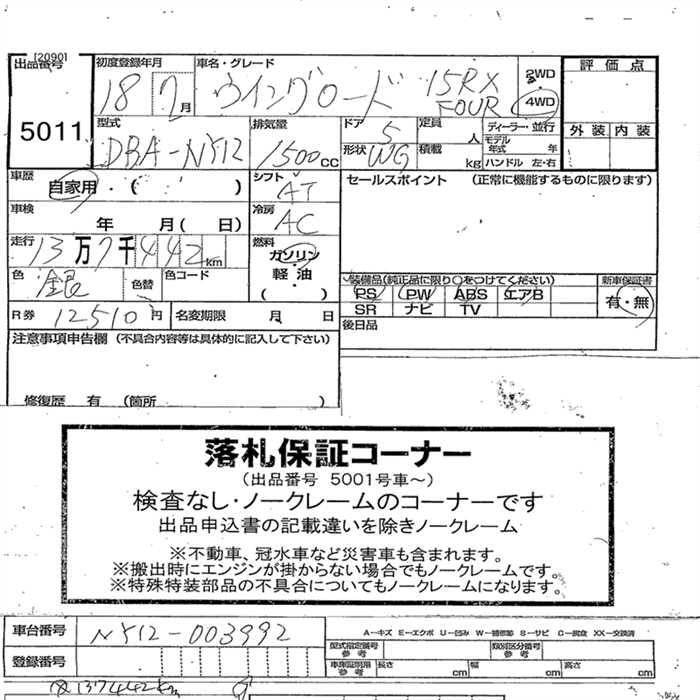 [2090]
出品番号
5011
初度登録年月
18 7月
車名・グレード
ウイングロード 15RX FOUR
2WD
4WD
評価点
外装 内装
型式
DBA-NY12
排気量
1500cc
ドア 5
形状 WG
定員 人
積載 kg
ディーラー・並行
モデル年式 年
ハンドル 左・右
車歴
自家用・( )
シフト AT
セールスポイント (正常に機能するものに限ります)
車検 年 月( 日)
冷房 AC
走行 13万7千442km
燃料
ガソリン
・
軽・油
( )
色 銀
色替
色コード
装備品(純正品に限り○をつけてください)
PS PW ABS エアB
SR ナビ TV
新車保証書
有・無
R券 12510円
名変期限 月 日
後日品
注意事項申告欄 (不具合内容等は具体的に記入して下さい)
修復歴 有 (箇所 )
落札保証コーナー
(出品番号 5001号車～)
検査なし・ノークレームのコーナーです
出品申込書の記載違いを除きノークレーム
※不動車、冠水車など災害車も含まれます。
※搬出時にエンジンが掛からない場合でもノークレームです。
※特殊特装部品の不具合についてもノークレームになります。
車台番号 NY12-003992
A－キズ E－エクボ U－凹み W－補修跡 S－サビ C－腐食 XX－交換済
型式指定番号 参考
類別区分番号 参考
登録番号
車庫証明用 参考
長さ cm 幅 cm 高さ cm
137442km